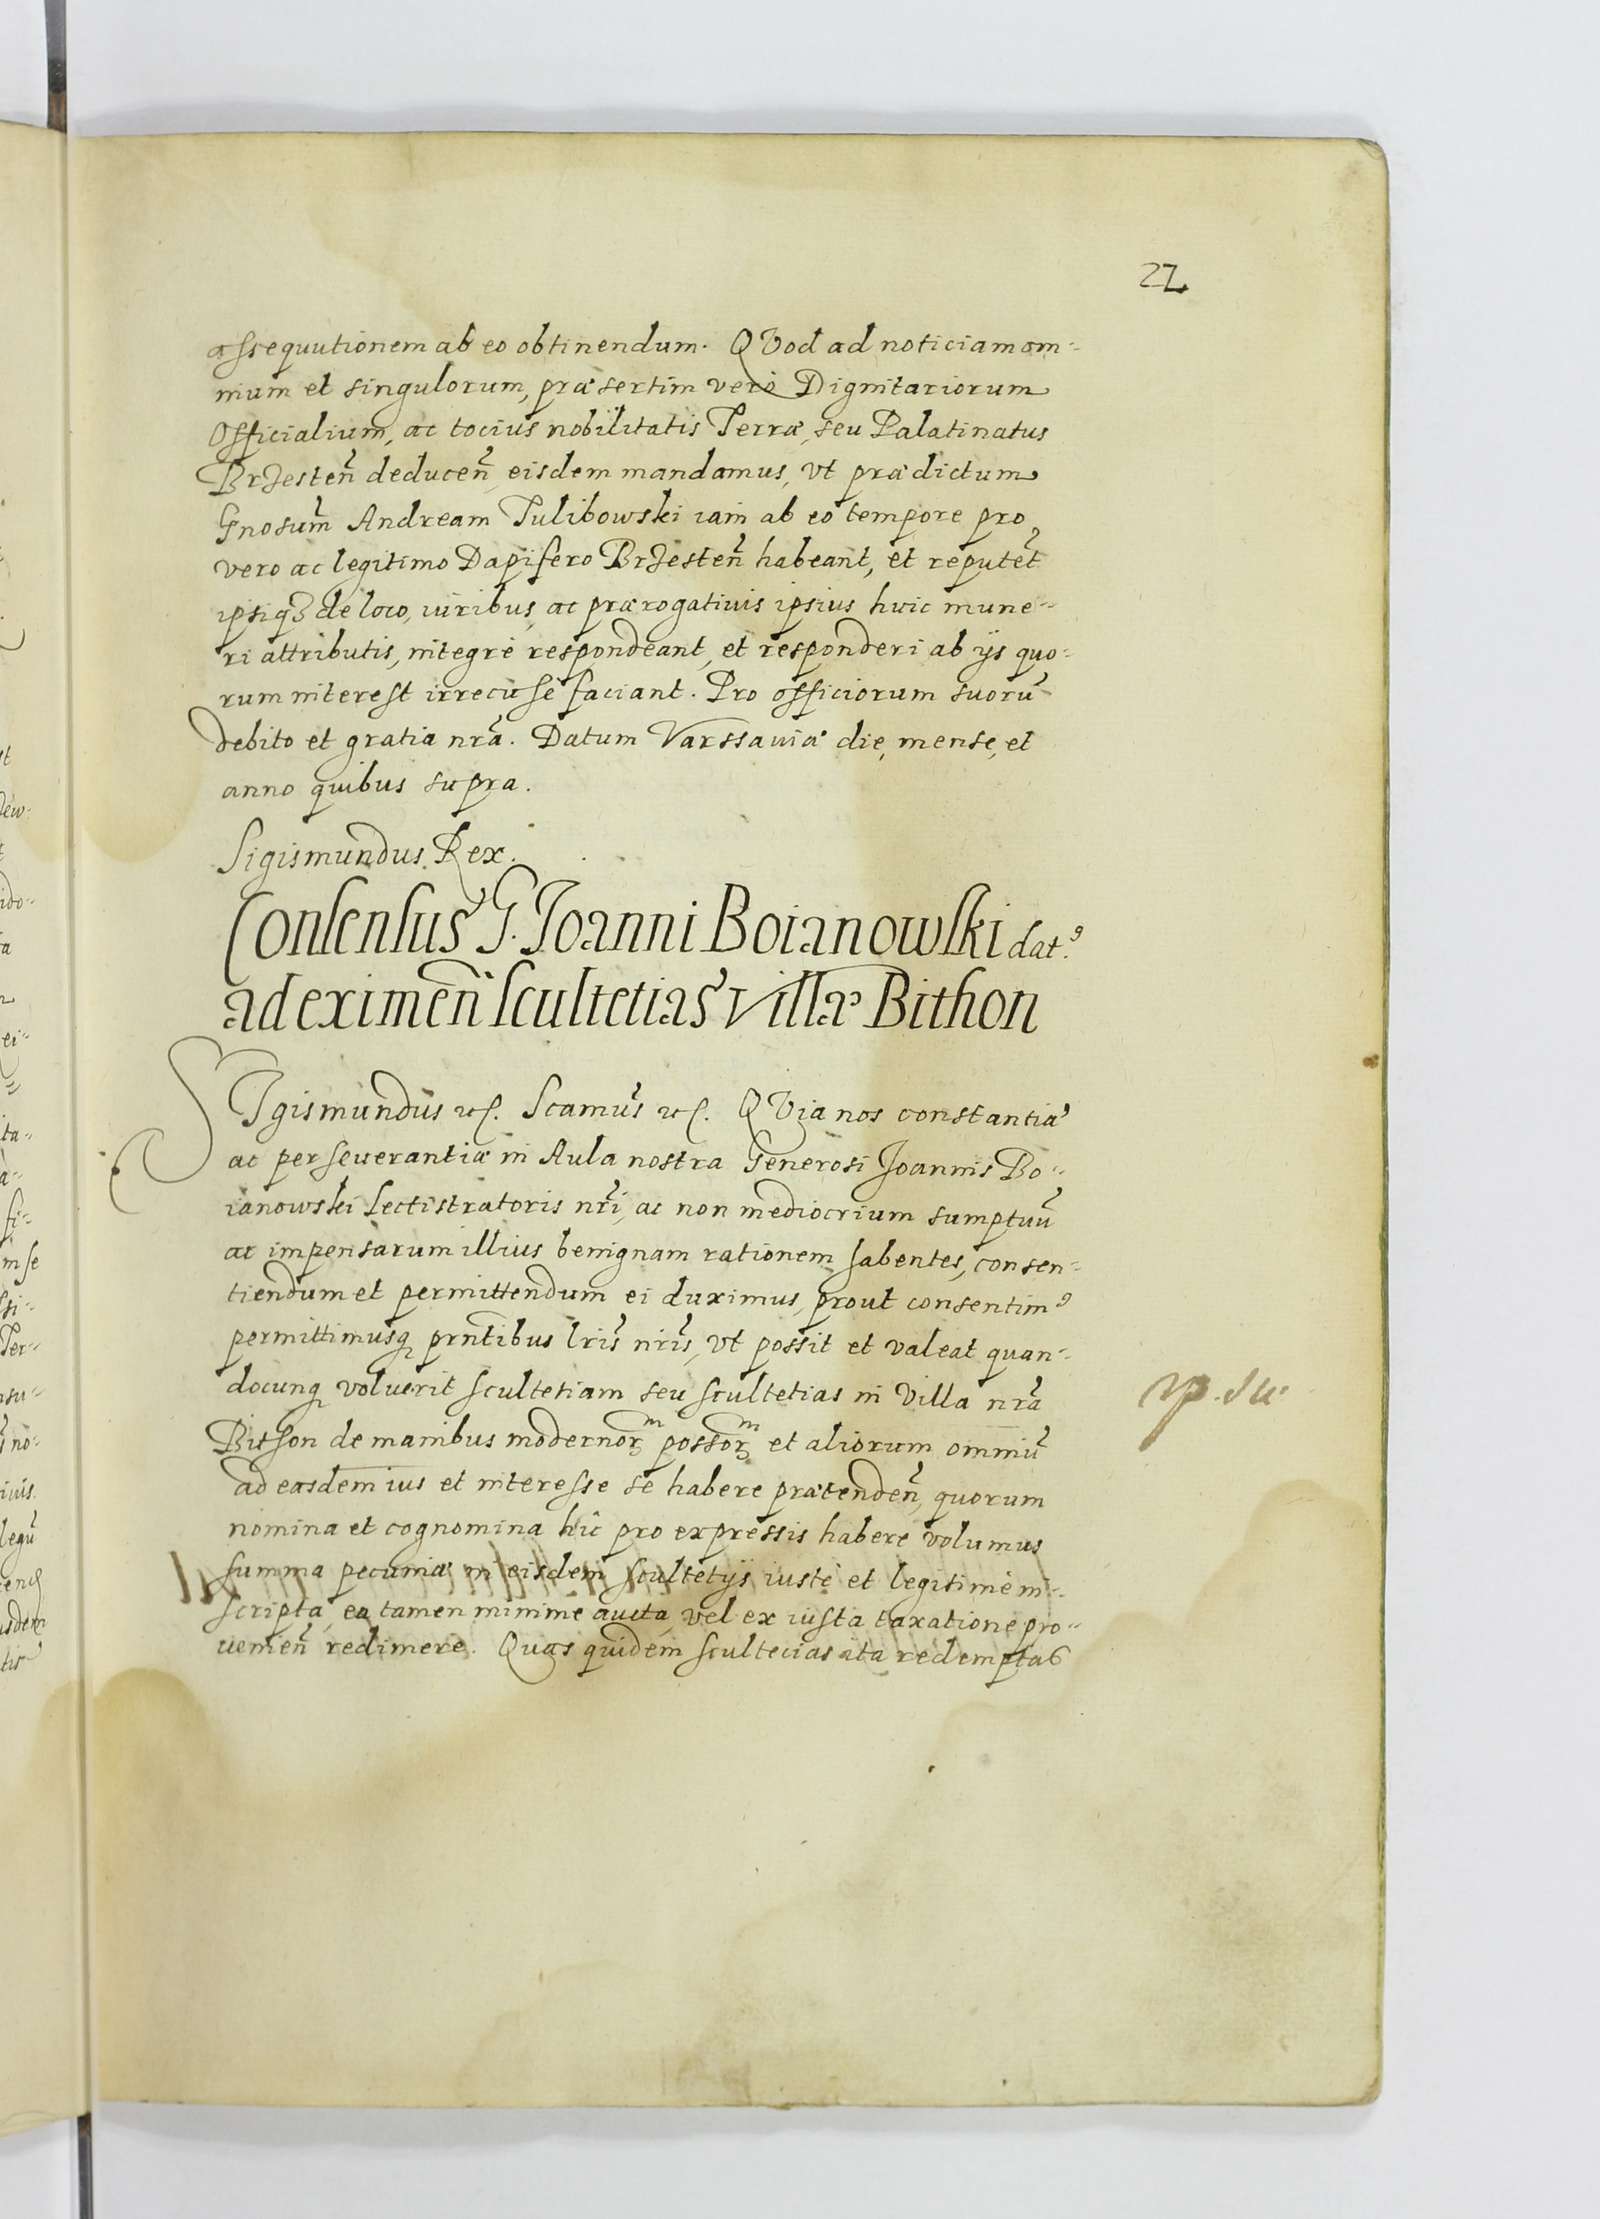 22
assequutionem ab eo obtinendum. QVod ad noticiam om-
nium et singulorum, præsertim verò Dignitariorum
Officialium, ac tocius nobilitatis Terræ, seu Palatinatus
Brzesteñ deduceñ, eisdem mandamus, vt prædictum
Gnosum Andream Tulibowski iam ab eo tempore pro
vero ac legitimo Dapifero Brzesteñ habeant, et reputet
ipsiqз de loco, iuribus, ac prærogatiuis ipsius huic mune-
ri attributis, integrè respondeant, et responderi ab ijs quo-
rum interest irrecusè faciant. Pro officiorum suorū
debito et gratia nrã. Datum Varssauiæ die, mense, et
anno quibus supra.
Sigismundus Rex.
Consensus G. Joanni Boianowski dat9.
ad eximeñ scultetias Villæ Bithon
SIgismundus etc. Scamus etc. QVia nos constantiæ
ac perseuerantiæ in Aula nostra Generosi Joannis Bo-
ianowski Lectistratoris nri, ac non mediocrium sumptuū
ac impensarum illius benignam rationem habentes, consen-
tiendum et permittendum ei duximus, prout consentim9
permittimusq prntibus lris nris, vt possit et valeat quan-
docunq voluerit scultetiam seu scultetias in Villa nrã
Bithon de manibus modernorum possorum et aliorum omniū
ad easdem ius et interesse se habere prætendeñ, quorum
nomina et cognomina hîc pro expressis habere volumus
summa pecuniæ in eisdem scultetijs iustè et legitimè in-
scripta, ea tamen minime aucta, vel ex iusta taxatione pro-
uenieñ redimere. Quas quidem scultecias ita redemptas